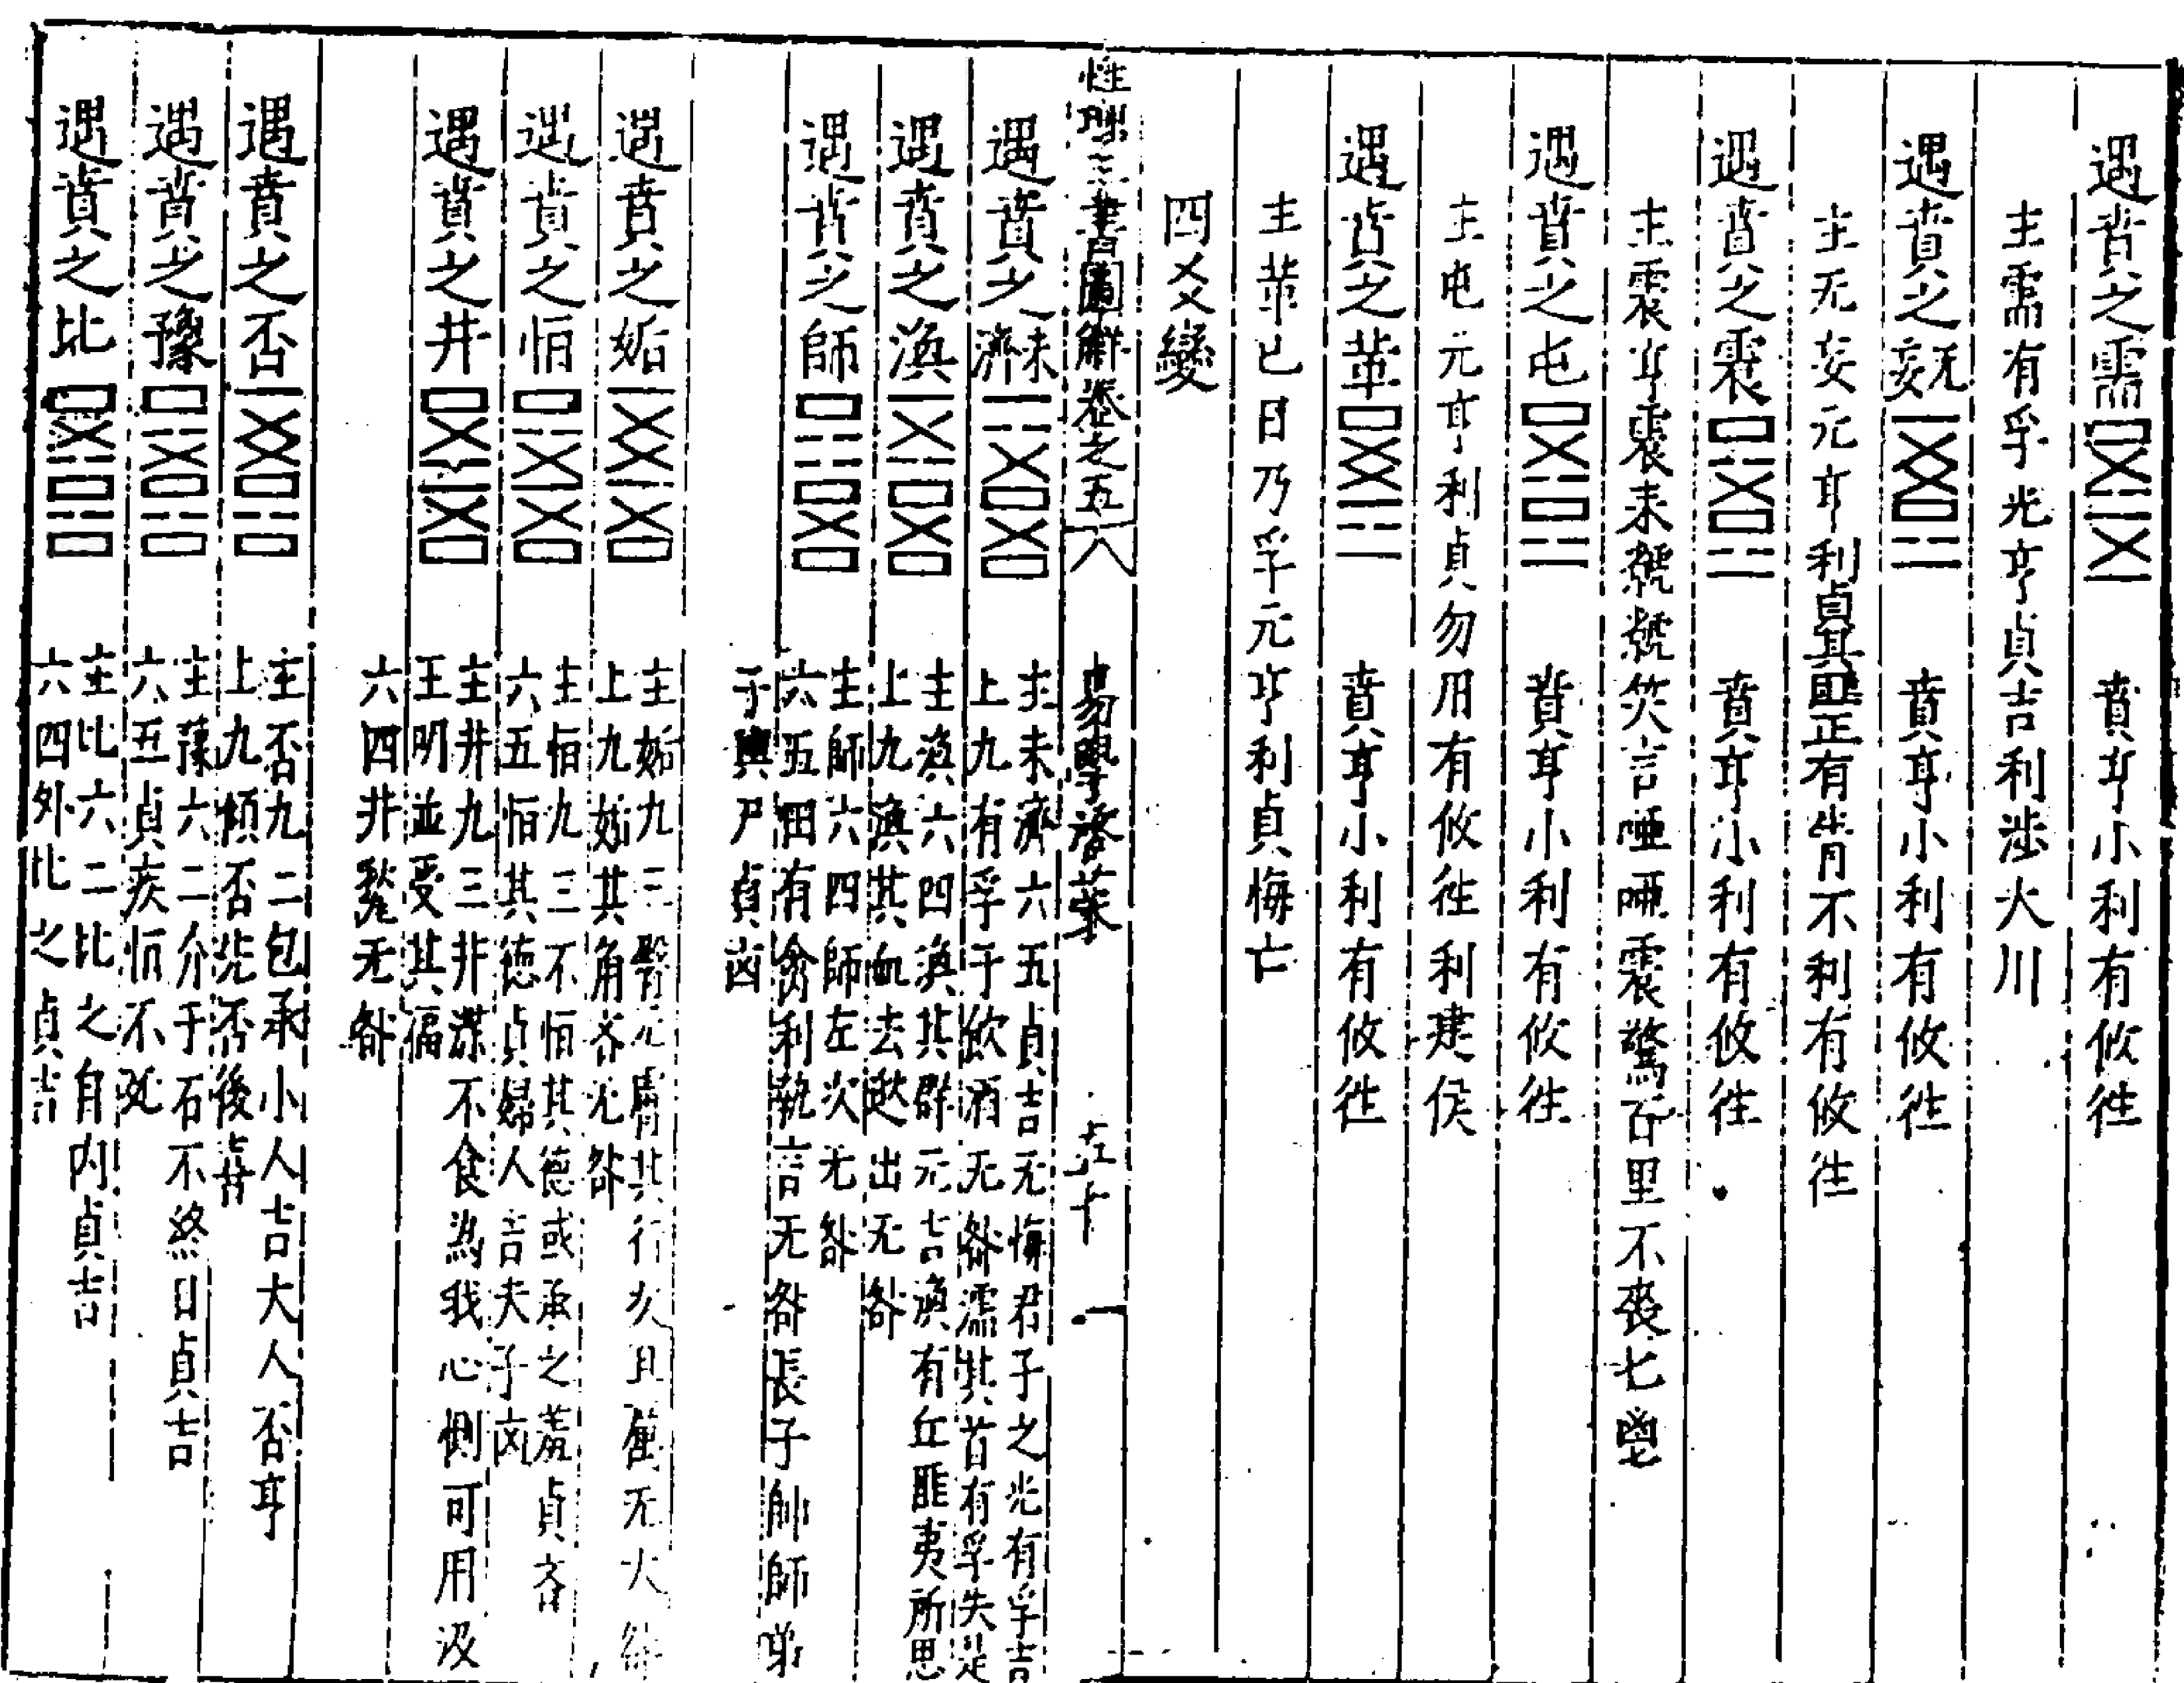 遇賁之需 賁亨小利有攸往
主需有孚光亨貞吉利涉大川
遇賁之无妄 賁亨小利有攸往
主无妄元亨利貞其匪正有眚不利有攸往
遇賁之震 賁亨小利有攸往
主震亨震来虩虩笑言啞啞震驚百里不喪匕鬯
遇賁之屯 賁亨小利有攸往
主屯元亨利貞勿用有攸往利建侯
遇賁之革 賁亨小利有攸往
主革已日乃孚元亨利貞悔亡
四爻變
性理三書圖解卷之五 易學啓蒙
遇賁之未濟 主未濟六五貞吉无悔君子之光有孚吉
上九有孚于飲酒无咎濡其首有孚失是
遇賁之渙 主渙六四渙其群元吉渙有丘匪夷所思
上九渙其血去逖出无咎
遇賁之師 主師六四師左次无咎
六五田有禽利執言无咎長子帥師弟
子輿尸貞凶
遇賁之姤 主姤九三臀无膚其行次且厲无大咎
上九姤其角吝无咎
遇賁之恒 主恒九三不恒其德或承之羞貞吝
六五恒其德貞婦人吉夫子凶
遇賁之井 主井九三井渫不食為我心惻可用汲
王明並受其福
六四井甃无咎
遇賁之否 主否九二包承小人吉大人否亨
上九傾否先否後喜
遇賁之豫 主豫六二介于石不終日貞吉
六五貞疾恒不死
遇賁之比 主比六二比之自内貞吉
六四外比之貞吉